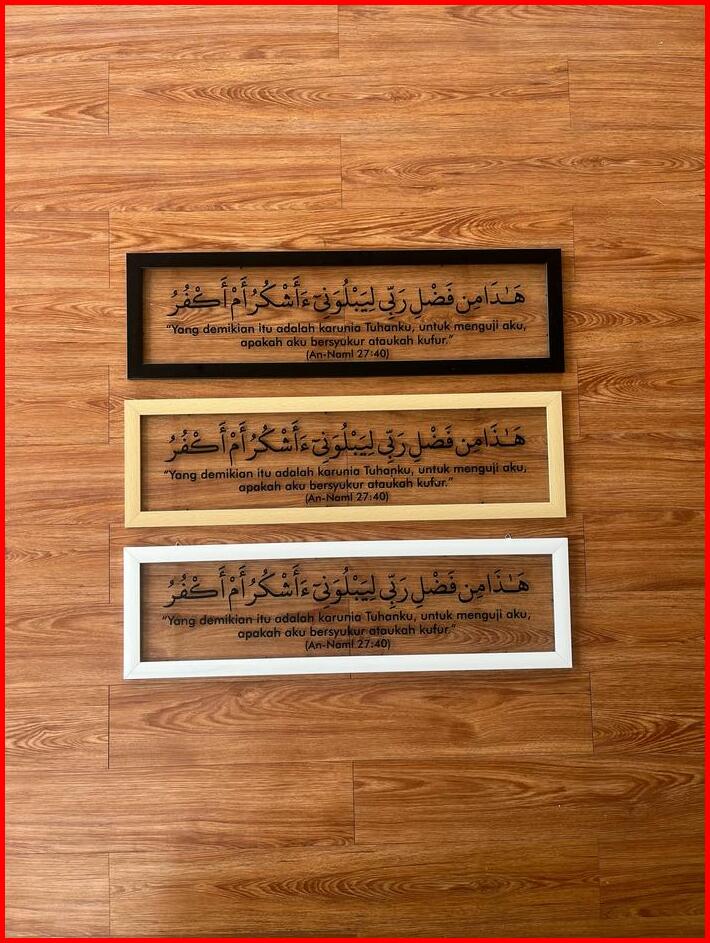 هَـٰذَا مِن فَضْلِ رَبِّي لِيَبْلُوَنِيٓ ءَأَشْكُرُ أَمْ أَكْفُرُ
“Yang demikian itu adalah karunia Tuhanku, untuk menguji aku,
apakah aku bersyukur ataukah kufur.”
(An-Naml 27:40)
هَـٰذَا مِن فَضْلِ رَبِّي لِيَبْلُوَنِيٓ ءَأَشْكُرُ أَمْ أَكْفُرُ
“Yang demikian itu adalah karunia Tuhanku, untuk menguji aku,
apakah aku bersyukur ataukah kufur.”
(An-Naml 27:40)
هَـٰذَا مِن فَضْلِ رَبِّي لِيَبْلُوَنِيٓ ءَأَشْكُرُ أَمْ أَكْفُرُ
“Yang demikian itu adalah karunia Tuhanku, untuk menguji aku,
apakah aku bersyukur ataukah kufur.”
(An-Naml 27:40)